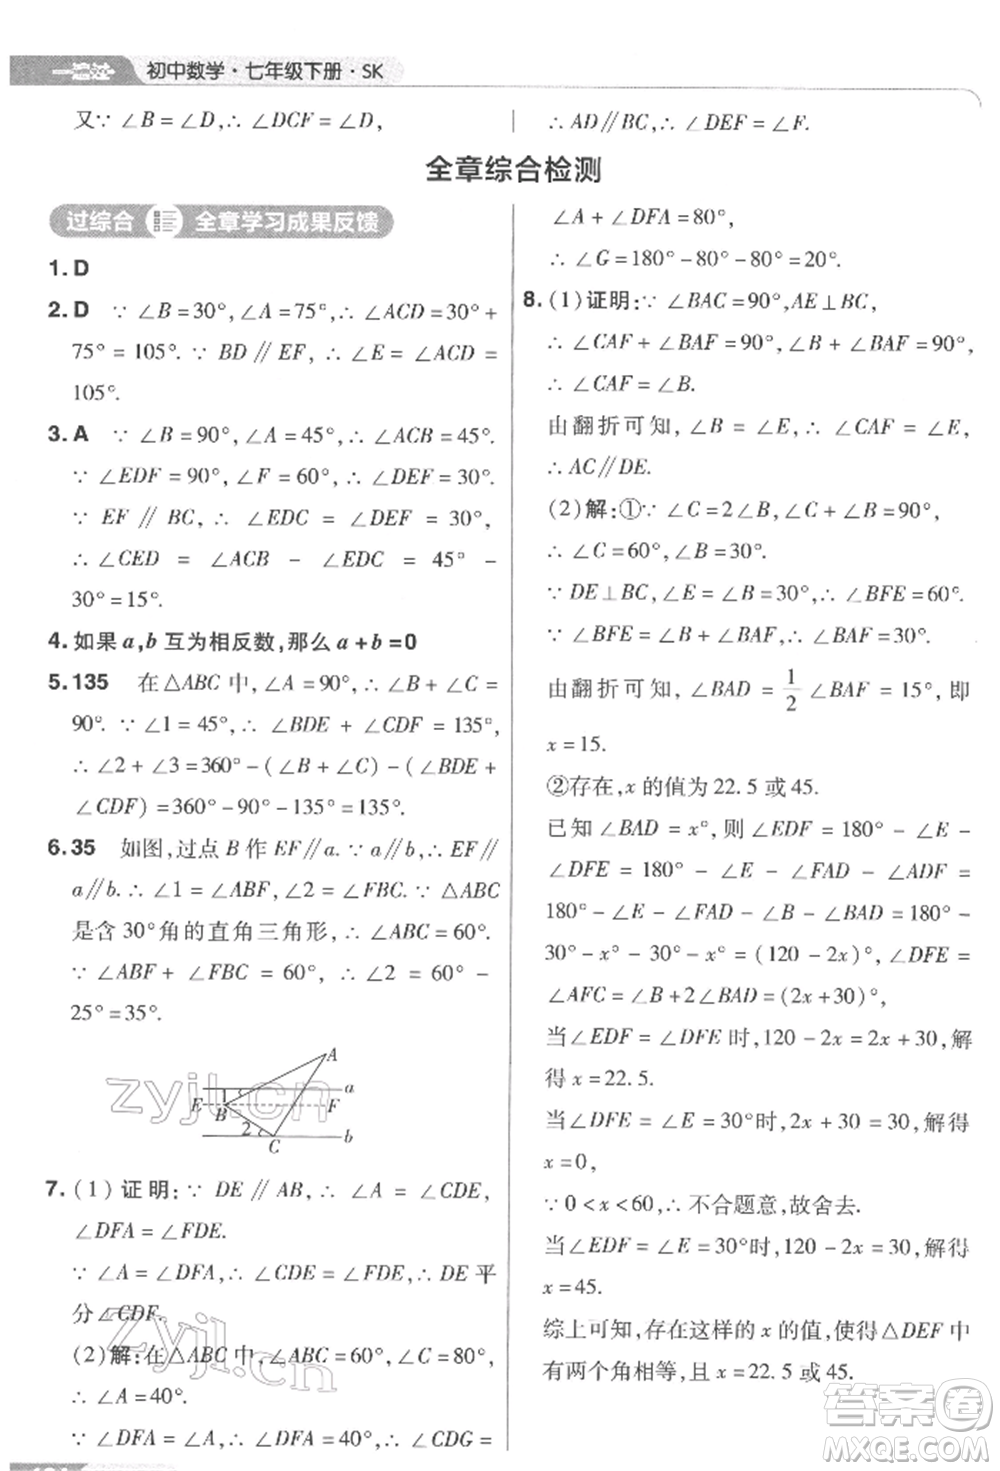 一遍过 初中数学·七年级下册·SK
又∵ ∠B = ∠D,∴ ∠DCF = ∠D,
∴ AD∥BC,∴ ∠DEF = ∠F.
全章综合检测
过综合 全章学习成果反馈
1. D
2. D ∵ ∠B = 30°,∠A = 75°,∴ ∠ACD = 30° +
75° = 105°. ∵ BD∥EF,∴ ∠E = ∠ACD =
105°.
3. A ∵ ∠B = 90°,∠A = 45°,∴ ∠ACB = 45°.
∵ ∠EDF = 90°,∠F = 60°,∴ ∠DEF = 30°.
∵ EF∥BC,∴ ∠EDC = ∠DEF = 30°,
∴ ∠CED = ∠ACB − ∠EDC = 45° −
30° = 15°.
4. 如果 a,b 互为相反数,那么 a + b = 0
5. 135 在△ABC 中,∠A = 90°,∴ ∠B + ∠C =
90°. ∵ ∠1 = 45°,∴ ∠BDE + ∠CDF = 135°,
∴ ∠2 + ∠3 = 360° − (∠B + ∠C) − (∠BDE +
∠CDF) = 360° − 90° − 135° = 135°.
6. 35 如图,过点 B 作 EF∥a. ∵ a∥b,∴ EF∥
a∥b. ∴ ∠1 = ∠ABF,∠2 = ∠FBC. ∵ △ABC
是含 30°角的直角三角形,∴ ∠ABC = 60°.
∵ ∠ABF + ∠FBC = 60°,∴ ∠2 = 60° −
25° = 35°.
A
1 a
E B F
2 C b
zyjl.cn
7. (1) 证明:∵ DE∥AB,∴ ∠A = ∠CDE,
∠DFA = ∠FDE.
∵ ∠A = ∠DFA,∴ ∠CDE = ∠FDE,∴ DE 平
分∠CDF.
zyjl.cn
(2)解:在△ABC 中,∠ABC = ∠C = 80°,
∴ ∠A = 40°.
∵ ∠DFA = ∠A,∴ ∠DFA = 40°,∴ ∠CDG =
∠A + ∠DFA = 80°,
∴ ∠G = 180° − 80° − 80° = 20°.
8. (1)证明:∵ ∠BAC = 90°,AE⊥BC,
∴ ∠CAF + ∠BAF = 90°,∠B + ∠BAF = 90°,
∴ ∠CAF = ∠B.
由翻折可知,∠B = ∠E,∴ ∠CAF = ∠E,
∴ AC∥DE.
(2)解:①∵ ∠C = 2∠B,∠C + ∠B = 90°,
∴ ∠C = 60°,∠B = 30°.
∵ DE⊥BC,∠E = ∠B = 30°,∴ ∠BFE = 60°.
∵ ∠BFE = ∠B + ∠BAF,∴ ∠BAF = 30°.
由翻折可知,∠BAD = 1/2 ∠BAF = 15°,即
x = 15.
②存在,x 的值为 22.5 或 45.
已知∠BAD = x°,则∠EDF = 180° − ∠E −
∠DFE = 180° − ∠E − ∠FAD − ∠ADF =
180° − ∠E − ∠FAD − ∠B − ∠BAD = 180° −
30° − x° − 30° − x° = (120 − 2x)°,∠DFE =
∠AFC = ∠B + 2∠BAD = (2x + 30)°,
当∠EDF = ∠DFE 时,120 − 2x = 2x + 30,解
得 x = 22.5.
当∠DFE = ∠E = 30°时,2x + 30 = 30,解得
x = 0,
∵ 0 < x < 60,∴ 不合题意,故舍去.
当∠EDF = ∠E = 30°时,120 − 2x = 30,解得
x = 45.
综上可知,存在这样的 x 的值,使得△DEF 中
有两个角相等,且 x = 22.5 或 45.
答案圈
MXQE.COM